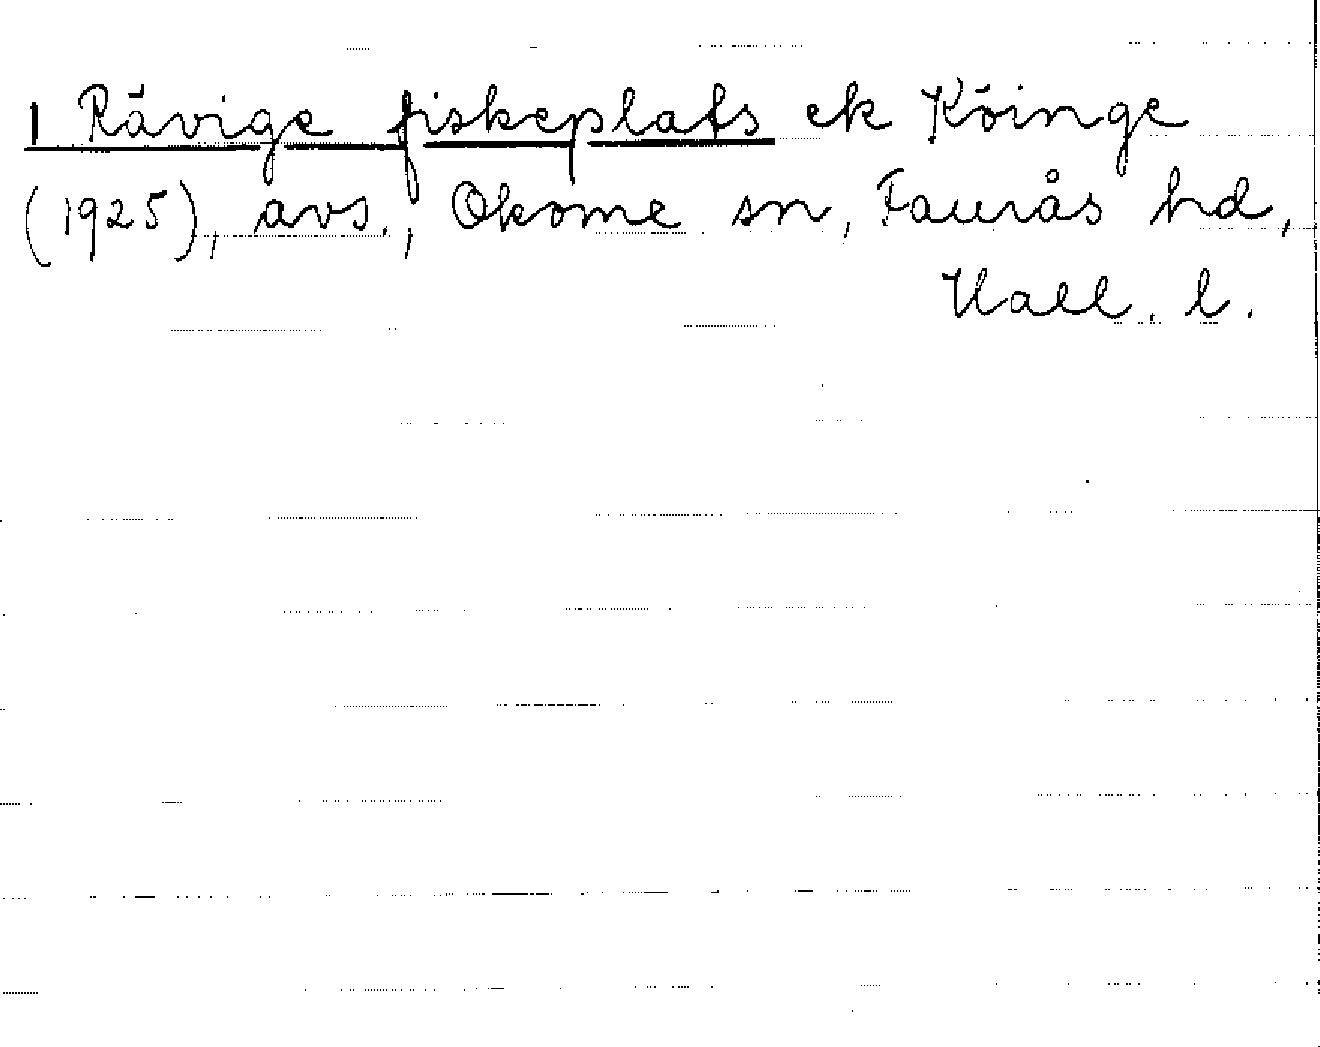 1 Rävige fiskeplats ek Köinge
(1925), avs., Okome sn, Faurås hd,
Hall. l.